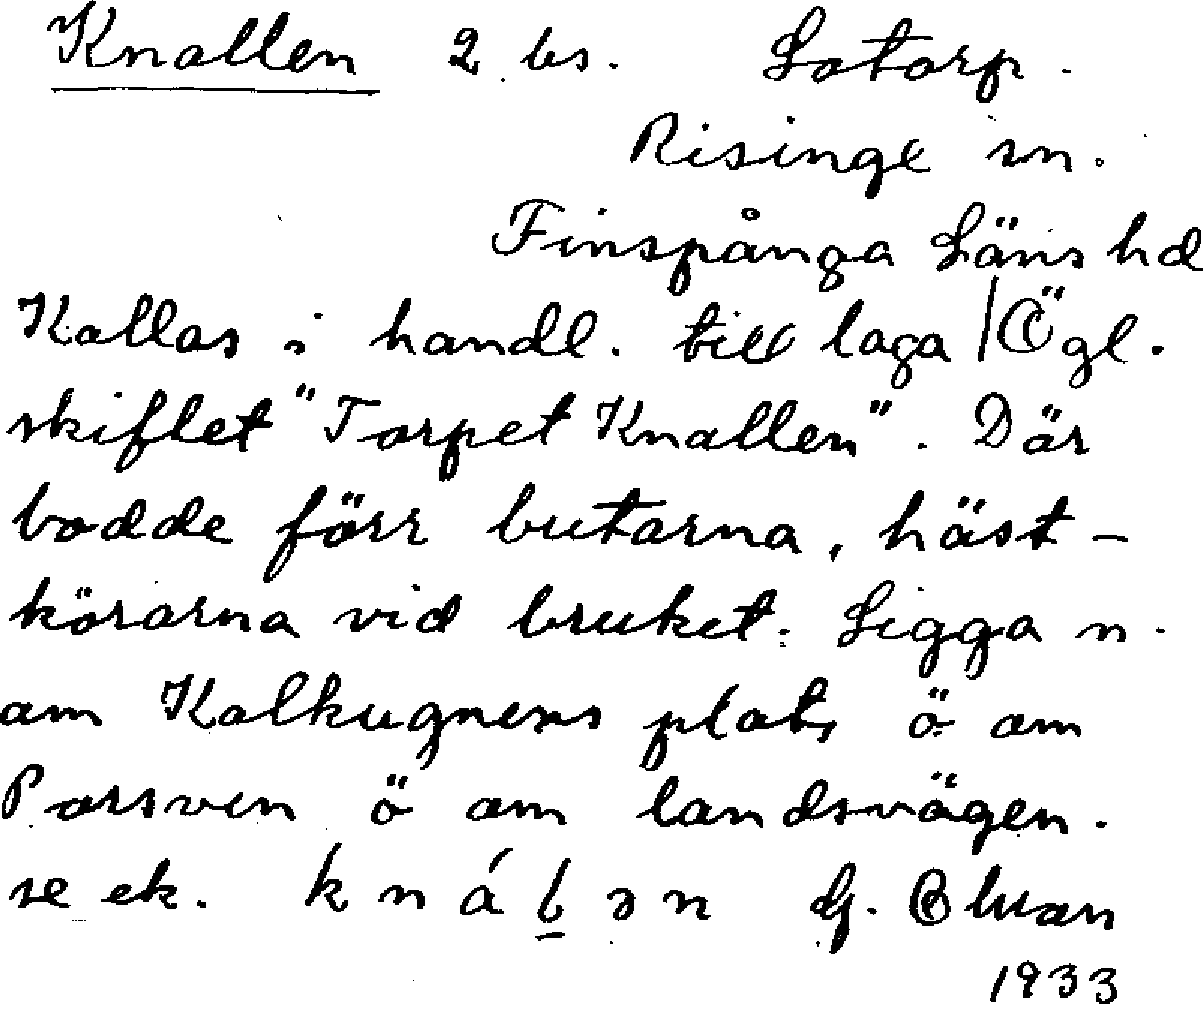 Knallen 2 bs. Lotorp.
Risinge sn.
Finspånga Läns hd
Kallas i handl. till laga / Ögl.
skiftet "Torpet Knallen". Där
bodde förr butarna, häst-
körarna vid bruket. Ligga n.
om Kalkugnens plats ö om
Porsven ö om landsvägen.
se ek. k n á l ə n G.
1933